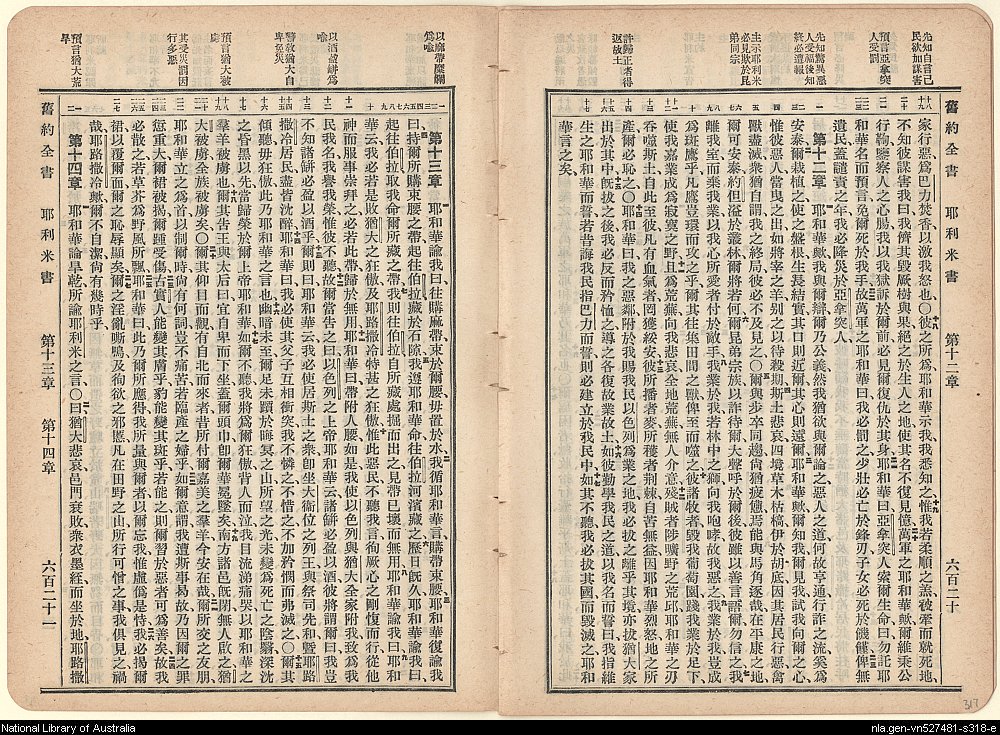 先知自言己民欲加謀害
預言亞拿突人受罰
先知驚異惡人受福後知終必遭報
主示耶利米必見欺於民弟同宗
許歸正者得返故土
舊約全書　耶利米書　第十二章　六百二十
家行惡爲巴力焚香以激我怒也○彼之所爲耶和華示我我悉知之惟我若柔順之羔被牽而就死地
不知彼謀害我曰我儕其毀厥樹與果絕之於生人之地使其名不復見億萬軍之耶和華歟爾維秉公
行鞫鑒察人之心腸我以我獄訴於爾前必見爾復仇於其身耶和華曰亞拿突人索爾生命曰勿託耶
和華名而預言免爾死於我手故萬軍之耶和華曰我必罰之少壯必亡於鋒刃子女必死於饑饉俾無
遺民蓋譴責之年我必降災於亞拿突人
第十二章　耶和華歟我與爾辯爾乃公義然我猶欲與爾論之惡人之道何故亨通行詐之流奚爲
安泰爾栽植之使之盤根生長結實其口則近爾其心則遠爾耶和華歟爾知我見我試我向爾之心
惟彼惡人當曳之出如將宰之羊別之以待殺期斯土悲哀四境草木枯槁伊於胡底因其居民行惡禽
獸盡滅衆猶自謂我之終局彼必不及見之○爾與步卒同趨尚猶疲憊焉能與馬角逐哉在平康之地
爾可安泰約但溢於叢林爾將若何爾昆弟宗族以詐待爾大聲呼於爾後彼雖以善言謂爾勿信之我
離我室而棄我業以我心所愛者付於敵手我業於我若林中之獅向我咆哮故我惡之我業於我豈成
爲斑鷹乎凡鷹豈環而攻之乎爾其往集田間之獸俾至而噬之彼諸牧者毀我葡萄園踐我業於足下
使我嘉業成爲寂寞之野且爲荒蕪向我悲哀全地荒蕪無人介意殘賊者陟曠野之荒邱耶和華之刃
吞噬斯土自此至彼凡有血氣者罔獲綏安彼所播者麥所穫者荊棘自苦無益因耶和華烈怒地之所
產爾必恥之○耶和華曰我之惡鄰附於我賜我民以色列爲業之地我必拔之離乎其境亦拔猶大家
出於其中旣拔之後我必反而矜恤之導之各復故業故土如彼勤學我民之道以我名而誓曰我指維
生之耶和華而誓若昔誨我民指巴力而誓則必建立於我民中如其不聽我必拔其國而毀滅之耶和
華言之矣
以麻帶糜爛爲喩
以酒盈缾爲喩
警教猶大自卑免災
預言猶大被虜
其受災罰因行多惡
預言猶大荒旱
第十三章　耶和華諭我曰往購麻帶束於爾腰毋置於水我循耶和華言購帶束腰耶和華復諭我
曰持爾所購束腰之帶起往伯拉藏於石隙我遵耶和華命往伯拉河濱藏之歷日旣久耶和華諭我曰
起往伯拉取我命爾所藏之帶我則往伯拉自所藏處掘而出之見帶已壞而無用耶和華諭我曰耶和
華云我必若是敗猶大之狂傲及耶路撒冷特甚之狂傲惟此惡民不聽我言徇厥心之剛愎而行從他
神而服事崇拜之必若此帶歸於無用耶和華曰帶附人腰如是我使以色列與猶大全家附我致爲我
民我名我譽我榮惟彼不聽故爾當告之曰以色列之上帝耶和華云諸缾必盈以酒彼將謂爾曰我豈
不知諸缾必盈以酒乎爾則曰耶和華云我必使居斯土之衆卽坐大衛位之列王與祭司先知曁耶路
撒冷居民盡皆沈醉耶和華曰我必使其父子互相衝突我不憐之不惜之不加矜憫而弗滅之○爾其
傾聽毋狂傲此乃耶和華之言也幽暗未至爾足未躓於晦冥之山所望之光未變爲死亡之陰翳深沈
之昏黑以先當歸榮於爾上帝耶和華如爾不聽我將爲爾狂傲背人而泣我目流涕痛哭以耶和華之
羣羊被虜也爾其告王與太后曰宜自卑而下坐蓋爾頭巾卽爾華冕墜矣南方諸邑旣閉無人啟之猶
大被虜全族被虜矣○爾其仰目而觀有自北而來者昔所付爾嘉美之羣羊今安在哉爾所交之友朋
耶和華立之爲首以制爾時尚有何詞豈不痛苦若臨產之婦乎如爾意謂我遭斯事曷故乃因爾之罪
愆重大爾裙被揭爾踵受傷古實人能變其膚乎豹能變其斑乎若能之則爾習於惡者可爲善矣故我
必散之若草芥爲野風所飄耶和華曰此乃爾所應得我所量與爾者以爾忘我惟虛僞是恃我必揭爾
裙以覆爾面爾之恥辱顯矣爾之淫亂嘶鳴及徇欲之邪慝凡在田野之山所行可憎之事我俱見之禍
哉耶路撒冷歟爾不自潔尚有幾時乎
第十四章　耶和華論旱乾所諭耶利米之言○曰猶大悲哀邑門衰敗衆衣墨絰而坐於地耶路撒
舊約全書　耶利米書　第十三章　第十四章　六百二十一
317
National Library of Australia
nla.gen-vn527481-s318-e